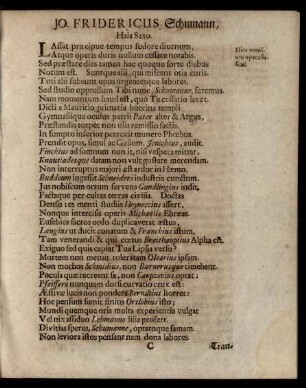 JO. FRIDERICUS Schumann,
Hala Saxo.
LAssat præcipue tempus sudore diurnum,
Atque operis duris nullum cessare notabis.
Sed præstare dies tamen hac quoque sorte diebus
Notum est. Sunt quealii, qui miscent otia curis.
Toti alii subeunt opus urgentesque labores.
Sed studio oppressum Tibi nunc, Schumanne, faremus.
Nam momentum haud est, quo Tu
Dicti a Mauritio primaria buccina templi
Gymnasiique oculus patrii Pater alter & Argus,
Præstandis torpet non ulla remissio factis.
In sumpto inferior perrexit munere Phœbus.
Prendit opus, simul ac Gallum, Jenichius, audit.
Finchius ad somnum non it, nisi vespera mittat.
Knautiadesque datam non vult gustare merendam.
Non interruptus majori est ardor in Hamo.
Buddeum ingessit Schneideri industria cunctum.
Jus nobiscum actum servens Gundlingius audit,
Factaque per cultas terras civilia. Doctas
Densis res menti studiis Heyneccius affert.
Nonque intercisis operis Michaelis Ebræas.
Eusebies sacro ordo duplicaverat æstus,
Langius ut ducit conatum & Franckius istum.
Tam venerandi & qui cœtus Breithauptius Alpha est.
Exiguo sed quis capiat Tua Lipsia versu?
Mortem non metuit toleratam Olearius ipsam.
Non morbos Schmidius, non Bornerusque timebant.
Pocula quæ recreent se, non Carpzovius optat:
Pfeifero nunquam dorsi curvatio crux est:
Æstive lucis non pondera Bernaldus horret:
Hoc pensum sumit finito Ortlobius isto;
Mundi quemque oris multa experientia vulgat
Vel nix assiduo Lehmannus lilia profert.
Divitias speres, Schumanne, optatque famam.
Non leviora istos pensant nam dona labores.
C
Tran-